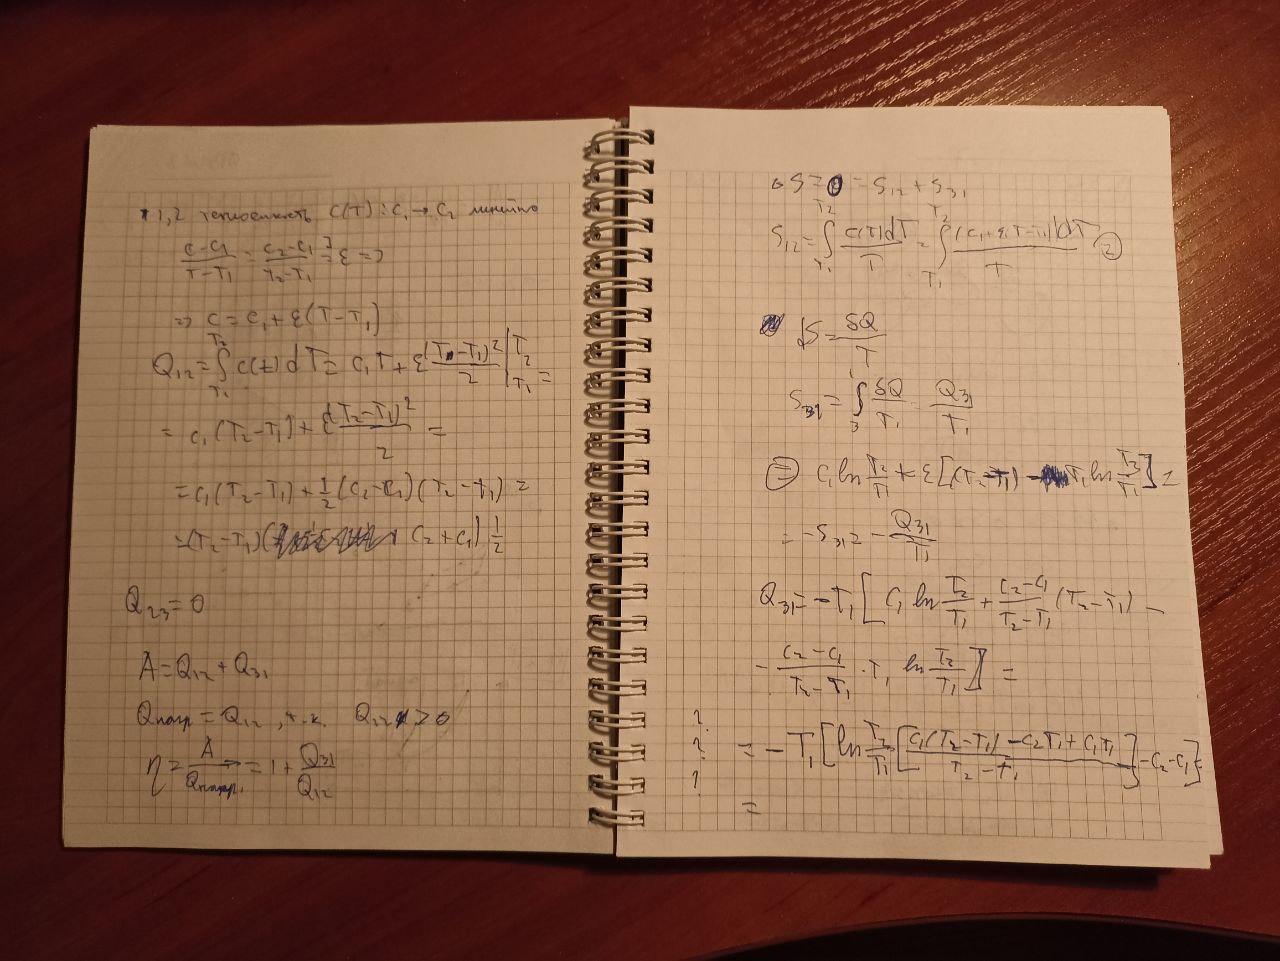 1,2 теплоемкость C(T): C₁→C₂ линейно
(C-C₁)/(T-T₁) = (C₂-C₁)/(T₂-T₁) = ε =>
=> C = C₁ + ε(T-T₁)
Q₁₂ = ∫_{T₁}^{T₂} C(t) dT = C₁T + ε (T-T₁)²/2 |_{T₁}^{T₂} =
= C₁(T₂-T₁) + ε (T₂-T₁)²/2 =
= C₁(T₂-T₁) + 1/2 (C₂-C₁)(T₂-T₁) =
= (T₂-T₁)( C₂+C₁) 1/2
Q₂₃ = 0
A = Q₁₂ + Q₃₁
Qнагр = Q₁₂, т.к. Q₁₂ > 0
η = A/Qнагр. = 1 + Q₃₁/Q₁₂
ΔS = 0 = S₁₂ + S₃₁
S₁₂ = ∫_{T₁}^{T₂} C(T)dT/T = ∫_{T₁}^{T₂} (C₁+ε(T-T₁))dT/T =
dS = δQ/T
S₃₁ = ∫_3^1 δQ/T₁ = Q₃₁/T₁
= C₁ ln T₂/T₁ + ε[(T₂-T₁) - T₁ ln T₂/T₁] =
= -S₃₁ = -Q₃₁/T₁
Q₃₁ = -T₁[C₁ ln T₂/T₁ + (C₂-C₁)/(T₂-T₁) (T₂-T₁) -
- (C₂-C₁)/(T₂-T₁) · T₁ ln T₂/T₁] =
? ? ? = -T₁[ln T₂/T₁ [(C₁(T₂-T₁) - C₂T₁ + C₁T₁)/(T₂-T₁)] - C₂-C₁] =
=